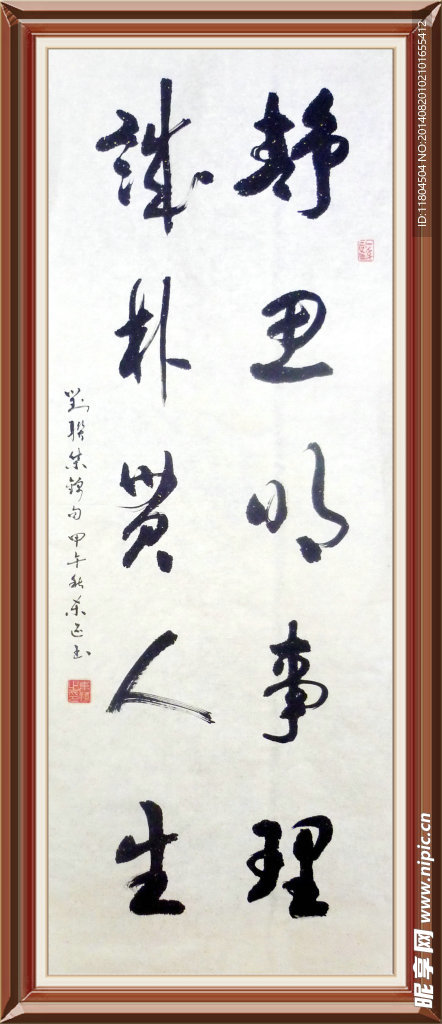 靜思明事理
誠朴貫人生
句甲午秋
ID:11804504 NO:20140820102101655412
昵享网 www.nipic.cn